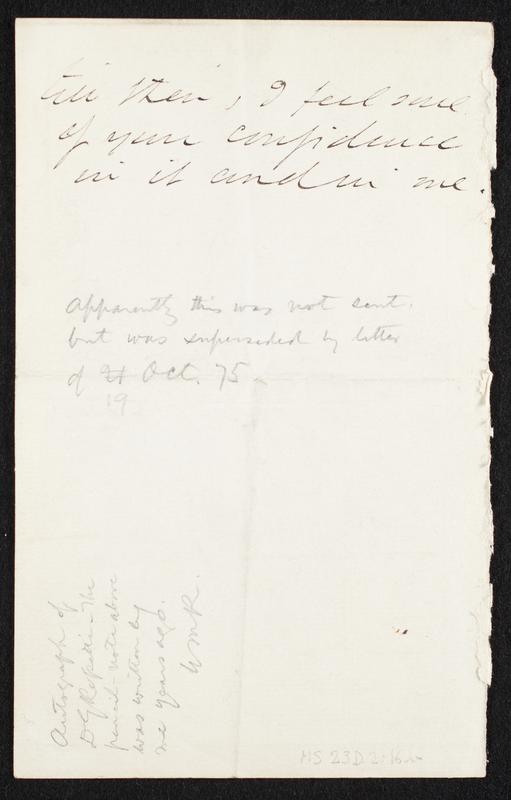 till then, I feel sure
of your confidence
in it and in me.
Apparently this was not sent.
but was superseded by letter
of 21 Oct. 75.
19
Autograph of
D G Rossetti – The
pencil-note above
was written by
me years ago.
W M R.
MS 23D.2:16